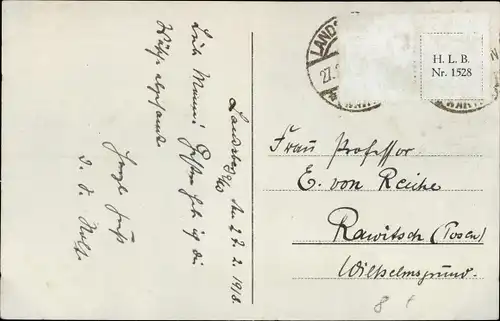 Landsberg a/W den 27.2.1918.
Liebe Mimi! Gestern hab ich die
Wäsche abgesandt
Herzl. Gruß
LANDS
27.
H. L. B.
Nr. 1528
Frau Professor
E. von Reiche
Rawitsch (Posen)
Wilhelmsgrund.
8